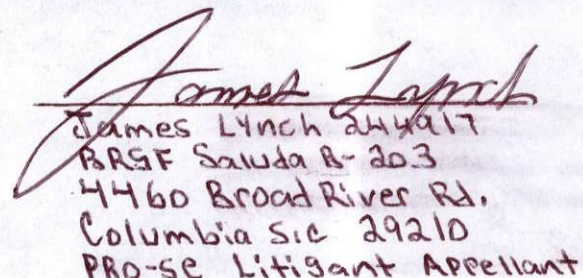 James Lynch
James Lynch 244917
BRSF Saluda B-203
4460 Broad River Rd.
Columbia S.C 29210
PRO-SE Litigant Appellant